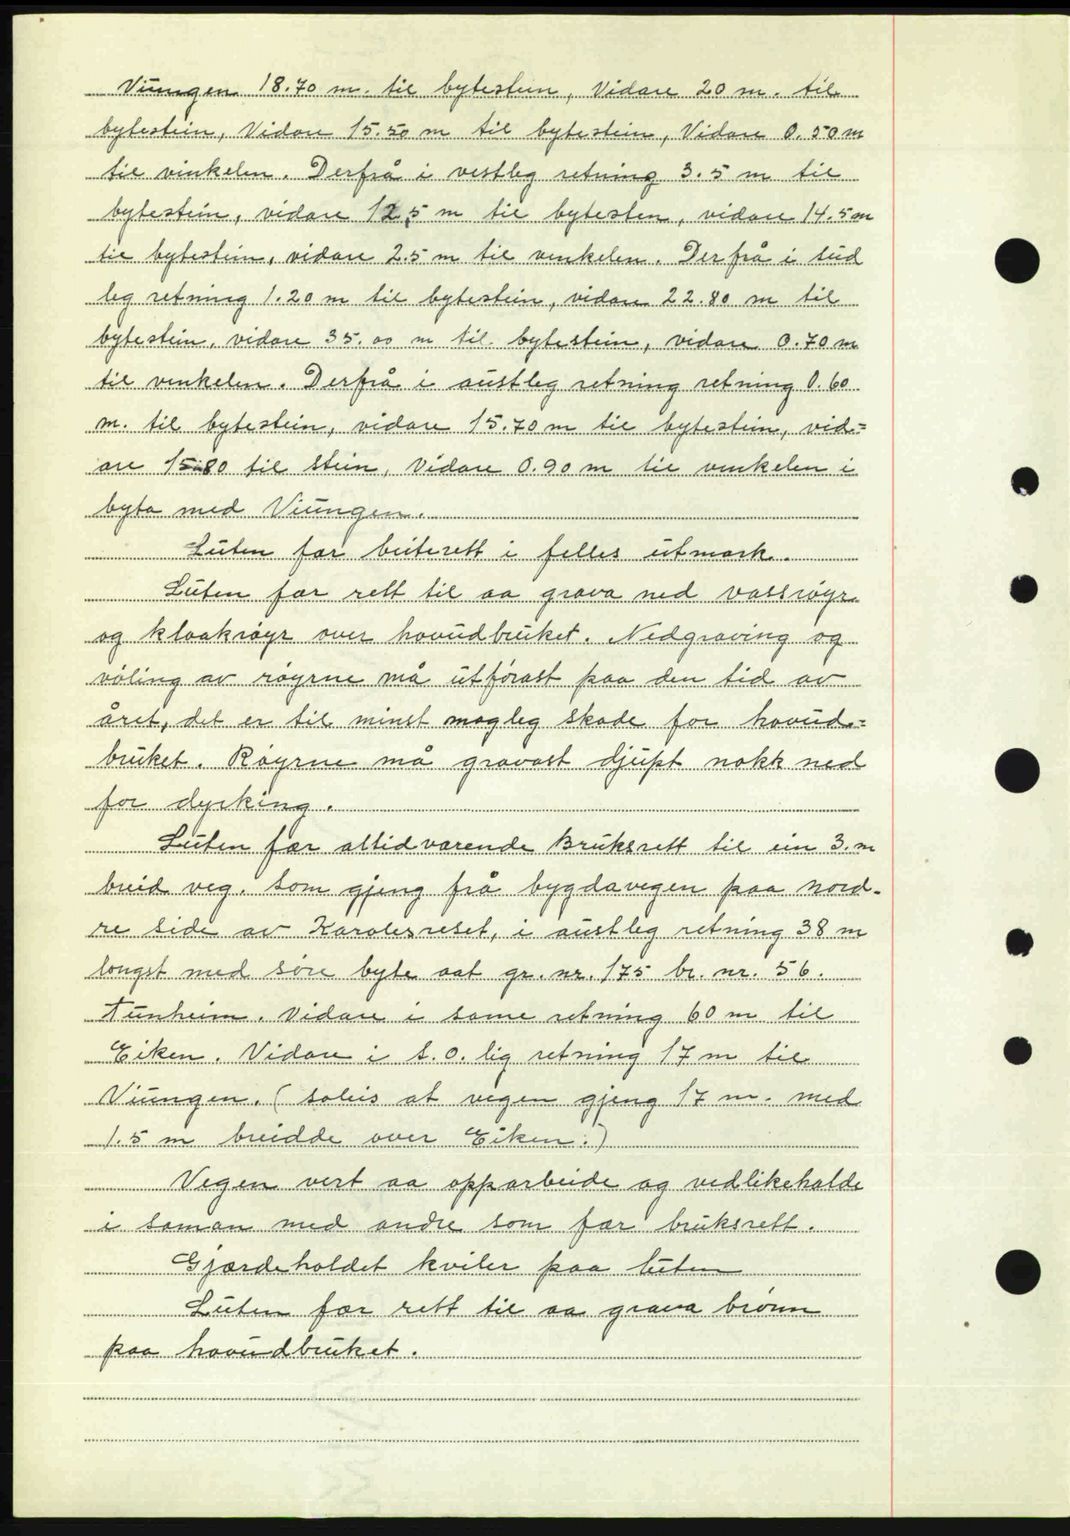 Viungen 18.70 m. til bytestein, Vidare 20 m. til
bytestein, Vidare 15.50 m til bytestein, Vidare 0.50 m
til vinkelen. Derfrå i vestleg retning 3.5 m til
bytestein, vidare 12,5 m til bytesten, vidare 14.5 m
til bytestein, vidare 2.5 m til vinkelen. Derfrå i süd
leg retning 1.20 m til bytestein, vidare 22.80 m til
bytestein, vidare 35.00 m til. bytestein, vidare 0.70 m
til vinkelen. Derfrå i austleg retning retning 0.60
m. til bytestein, vidare 15.70 m til bytestein, vid=
are 15.80 til stein, Vidare 0.90 m til vinkelen i
byta med Viungen.
Luten fær beiterett i felles utmark.
Luten fær rett til aa grava ned vassrøyr
og kloakrøyr over hovudbruket. Nedgraving og
vøling av røyrne må utførast paa den tid av
året, det er til minst mogleg skade for hovud=
bruket. Røyrne må gravast djupt nokk ned
for dyrking.
Luten fær altidvarende Bruksrett til ein 3. m
breid veg. som gjeng frå bygdavegen paa nord-
re side av Karolesreset, i austleg retning 38 m
longst med søre byte aat gr. nr. 175 br. nr. 56.
Tunheim. Vidare i same retning 60 m til
Eiken. Vidare i S.O. lig retning 17 m til
Viungen. (soleis at vegen gjeng 17 m. med
1.5 m breidde over Eiken.)
Vegen vert aa opparbeide og vedlikehalde
i saman med andre som fær bruksrett.
Gjærdeholdet kviler paa luten
Luten fær rett til aa grava brønn
paa hovudbruket.